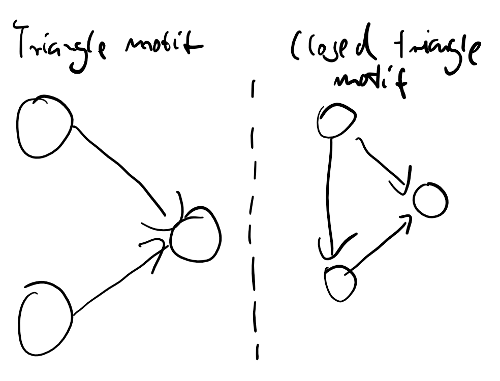 Triangle motif
Closed triangle
motif